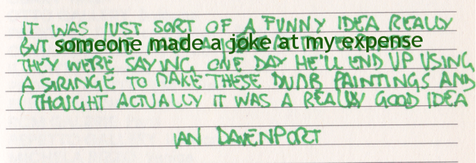 IT WAS JUST SORT OF A FUNNY IDEA REALLY
BUT someone made a joke at my expense
THEY WERE SAYING ONE DAY HE'LL END UP USING
A SIRINGE TO MAKE THESE DUMB PAINTINGS AND
I THOUGHT ACTUALLY IT WAS A REALLY GOOD IDEA
IAN DAVENPORT